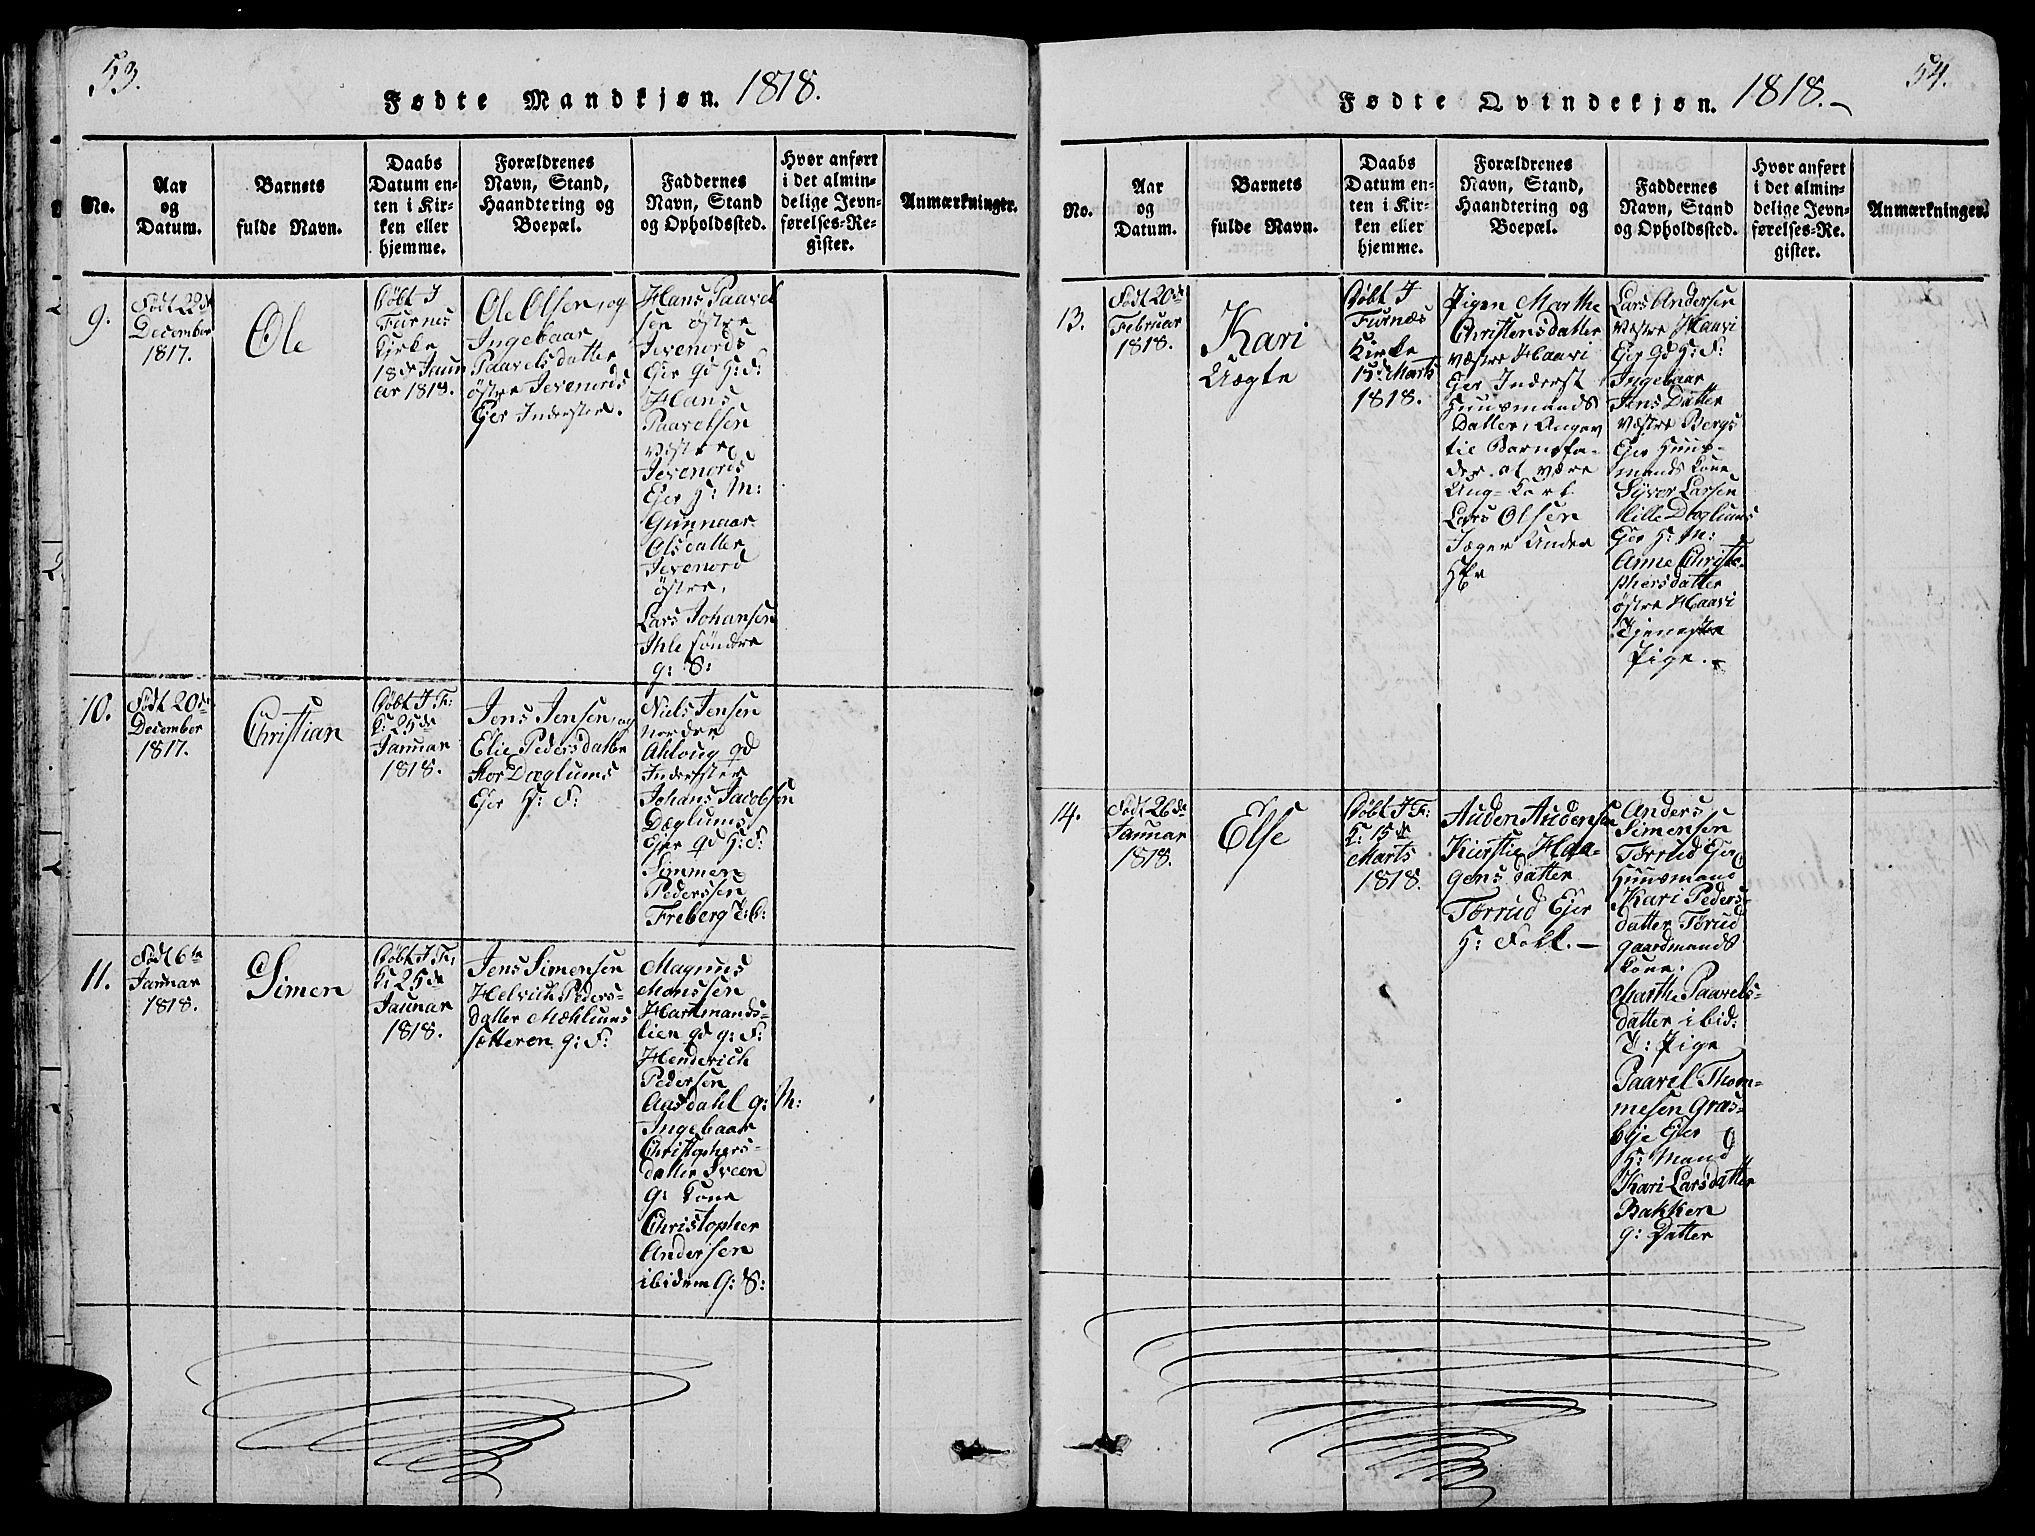 53.
Fødte Mandkjøn. 1818.
No.
Aar
og
Datum.
Barnets
fulde Navn.
Daabs
Datum en-
ten i Kir-
ken eller
hjemme.
Forældrenes
Navn, Stand,
Haandtering og
Boepæl.
Faddernes
Navn, Stand
og Opholdssted.
Hvor anført
i det almin-
delige Jevn-
førelses-Re-
gister.
Anmærkninger.
9.
Født 22de
December
1817.
Ole
Døbt I
Furnes
Kirke
18de Janu
ar 1818.
Ole Olsen, og
Ingebaar
Paavelsdatter
østre Jevenords
Ejer Inderster.
Hans Paavel
sen østre
Jevenords
Ejer qd H: F:
Hans
Paavelsen
vestre
Jevenords
Ejer H: M:
Gunnaar
Olsdatter
Jevenord
østre,
Lars Johansen
Ihle søndre
g: S:
10.
Født 20de
December
1817.
Christian
Døbt I F:
K: 25de
Januar
1818.
Jens Jensen, og
Elie Pedersdatter
Stor Dæglums
Ejer H: F:
Niels Jensen
norder
Ahlong qd
Inderster
Johans Jacobsen
Dæglums
Ejer qd H: F:
Simmen
Pederssen
Freberg T: C:
11.
Født 6te
Januar
1818.
Simen
Døbt I F:
K: 25de
Januar
1818.
Jens Simensen
Helvich Peders-
datter Mæhlums
sætteren g: F:
Magnus
Monssen
Hartmands-
lien qd g: F:
Henderich
Pedersen
Aasdahl g: M:
Ingebaar
Christophers-
datter Sveen
g: Kone
Christopher
Andersen
ibidem G: S:
54.
Fødte Qvindekjøn. 1818.-
No.
Aar
og
Datum.
Barnets
fulde Navn.
Daabs
Datum en-
ten i Kir-
ken eller
hjemme.
Forældrenes
Navn, Stand,
Haandtering og
Boepæl.
Faddernes
Navn, Stand
og Opholdssted.
Hvor anført
i det almin-
delige Jevn-
førelses-Re-
gister.
Anmærkninger.
13.
Født 20de
Februar
1818.
Kari
Uægte
Døbt I
Furnæs
Kirke
15de Marts
1818.
Pigen Marthe
Christensdatter
væstre Haavi
Ejer Inderst
Huusmands
Datter, Angav
til Barnefa-
der at være
Ung-Karl
Lars Olsen
Jæger Under
Lars Andersen
væstre Haavi
Ejer qd H: F:
Ingebaar
Jens Datter
væstre Bergs
Ejer Huus-
mands Kone
Syver Larsen
Lille Dæglums
Ejer H: M:
Anne Christo-
phersdatter
østre Haavi
Tjeneste
Pige.
14.
Født 26de
Januar
1818.
Else
Døbt I F:
K: 15de
Marts
1818.
Auden Audensen
Kierstie Haa-
gensdatter
Tørrud Ejer
H: Folk.-
Anders
Simensen
Tørrud Ejer
Huusmand
Kari Peders-
datter Tørud
gaardmands
Kone.
Marthe Paavels-
datter ibid:
T: Pige
Paavel Thom-
mesen Græs-
blje Ejer
H: Mand
Kari Larsdatter
Bakken
g: Datter